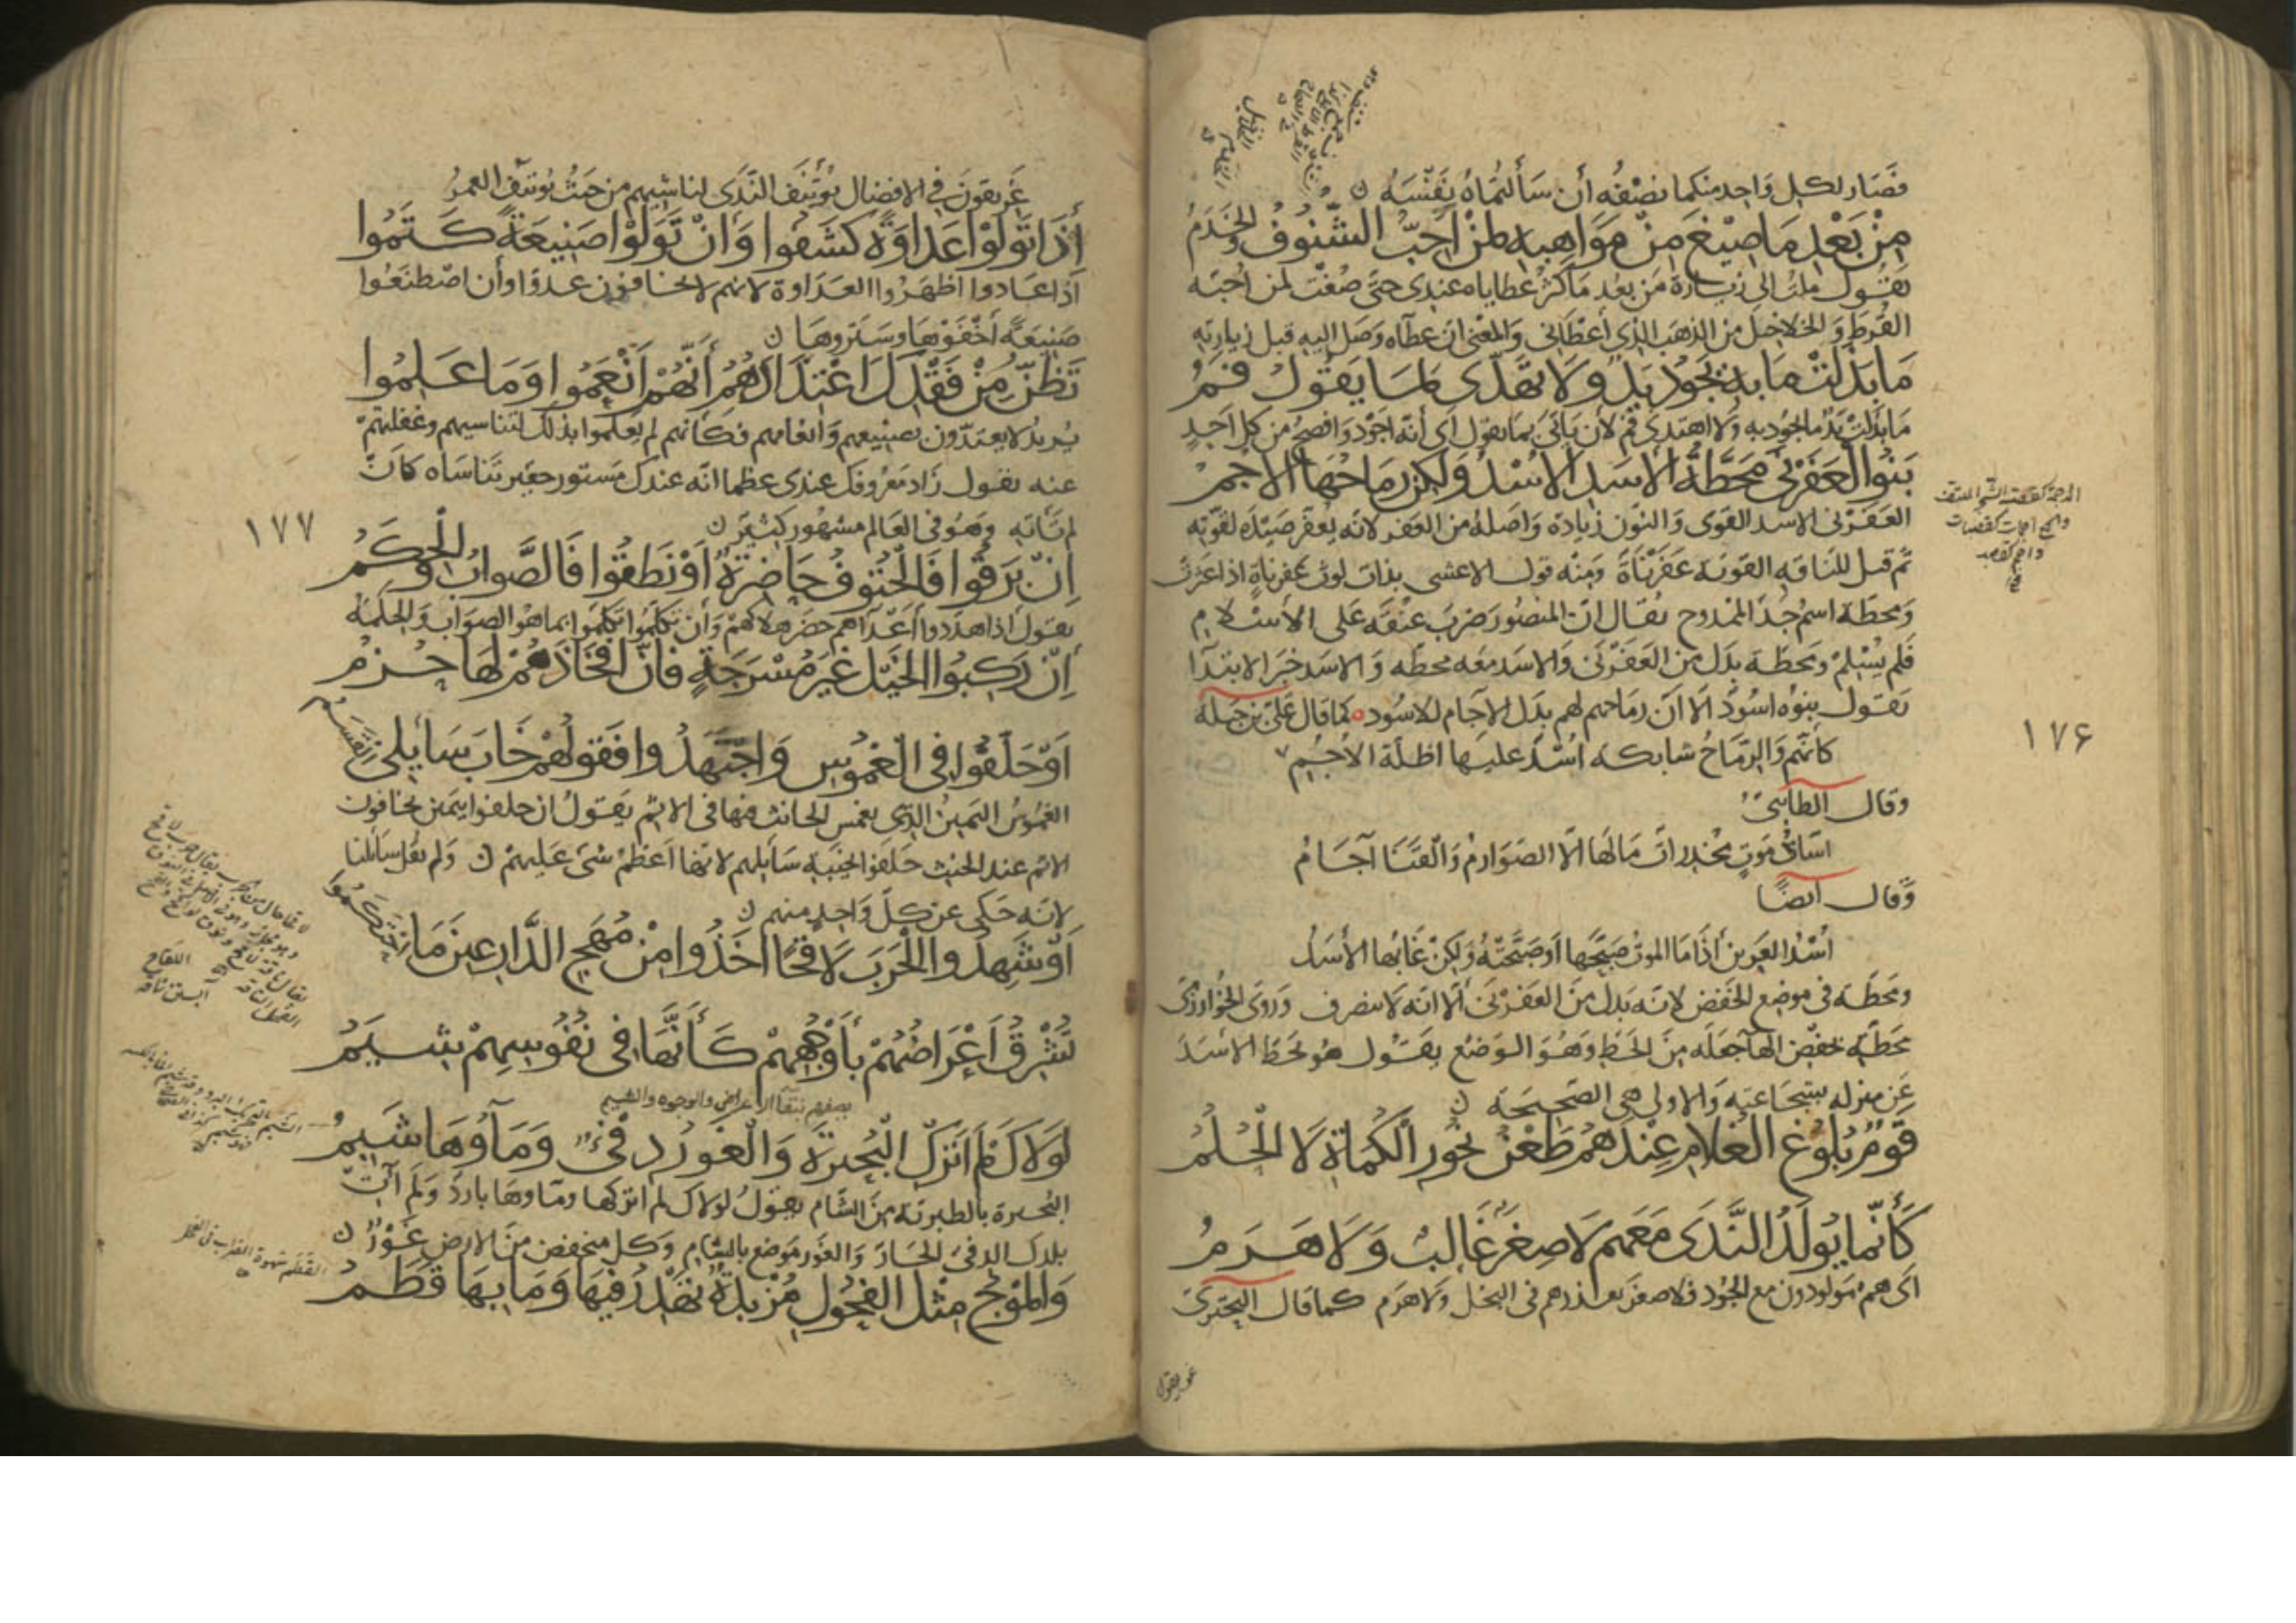 فصار لكل واحد منكما نصفه أن سألتماه نفسه ن
مِنْ بَعْدِ مَا صِيْغَ مِنْ مَوَاهِبِهِ لِمَنْ اُحِبُّ الشُّنُوفُ وَالخَدَمُ
يقول ملت الى زيارة من بعد ما كثر عطاياه عندى حتى صغت لمن احبه
القرط والخلاخل من الذهب الذى أعطانى والمعنى ان عطاه وصل اليه قبل زيارته
مَا بَذَلَتْ مَا بِهِ يَجُوْدُ يَدٌ وَلَا تَهَدَّى لِمَا يَقُوْلُ فَمُ
ما بذلت يد ما يجود به ولا اهتدى فم لأن يأتى بما يقول اى أنه اجود وافصح من كل احد
بَنُو العَفَرْنَى مَحَطَّةَ الأَسَدِ الأُسْدُ وَلكِنْ رِمَاحُهَا الأَجَمُ
العفرنى الاسد القوى والنون زيادة واصله من العفر لانه يعفر صيده لقوته
ثم قيل للناقه القويه عفرناة ومنه قول الاعشى بذات لوث عفرناة اذا عثرت
ومحطة اسم جد الممدوح يقال ان المنصور ضرب عنقه على الاسلام
فلم يسلم ومحطة بدل من العفرنى والاسد معه محطه والاسد خبر الابتدا
يقول بنوه اسود الا ان رماحهم لهم بدل الآجام للاسود كما قال على بن جبله
كانهم والرماح شابكه اسد عليها اظلة الاجم
وقال الطائى
اساد موت مخدرات مالها الا الصوارم والقنا آجام
وقال ايضا
أسد العرين اذا ما الموت صبحها أو صبحته ولكن غابها الأسل
ومحطة فى موضع الخفض لانه بدل من العفرنى الا انه لا ينصرف وروى الخوارزمى
محطه خفض الها جعله من الحط وهو الوضع يقول هو يحط الاسد
عن منزله بشجاعته والاولى هى الصحيحة ن
قَوْمٌ بُلُوغُ الغُلَامِ عِنْدَهُمُ طَعْنُ نُحُوْرِ الكُمَاةِ لَا الحُلُمُ
كَأَنَّمَا يُوْلَدُ النَّدَى مَعَهُمْ لَا صِغَرٌ غَالِبٌ وَلَا هَرَمُ
اى هم مولودون مع الجود فلا صغر يعذرهم فى البخل ولا هرم كما قال البحترى
١٧۶
غريقون
غريقون فى الافضال يؤتنف الندى لناشيهم من حيث يوتنف العمر
إِذَا تَوَلَّوْا عَدَاوَةً كَشَفُوا وَاِنْ تَوَلَّوْا صَنِيعَةً كَتَمُوا
اذا عادوا اظهروا العداوة لانهم لا يخافون عدوا وأن اصطنعوا
صنيعة أخفوها وستروها ن
تَظُنُّ مِنْ فَقْدِكَ اعْتِدَادَهُمُ أَنَّهُمْ اَنْعَمُوا وَمَا عَلِمُوا
يريد لا يعتدون بصنيعهم وانعامهم فكانهم لم يعلموا بذلك لتناسيهم وغفلتهم
عنه يقول زاد معروفك عندى عظما انه عندك مستور حقير تناساه كان
لم تأته وهو فى العالم مشهور كثير ن
١٧٧
اِنْ بَرَقُوا فَالحُتُوفُ حَاضِرَةٌ اَوْ نَطَقُوا فَالصَّوَابُ وَالحِكَمُ
يقول اذا هددوا أعداهم حضر هلاكهم وان تكلموا تكلموا بما هو الصواب والحكمة
اِنْ رَكِبُوا الخَيْلَ غَيْرَ مُسْرَجَةٍ فَاِنَّ اَفْخَاذَهُمْ لَهَا حُزُمُ
اَوْ حَلَفُوا فِى الغَمُوسِ وَاجْتَهَدُوا فَقَوْلُهُمْ خَابَ سَايِلِى القَسَمُ
الغموس اليمين الذى يغمس الحانث فيها فى الاثم يقول ان حلفوا بيمين يخافون
الاثم عند الحنث حلفوا بخيبة سايلهم لانها اعظم شى عليهم ن ولم يقل سائلنا
لانه حكى عن كل واحد منهم ن
اَوْ شَهِدُوا الحَرْبَ لَاقِحًا اَخَذُوا مِنْ مُهَجِ الدَّارِعِينَ مَا احْتَكَمُوا
تُشْرِقُ اَعْرَاضُهُمْ بِأَوْجُهِهِمْ كَأَنَّهَا فِى نُفُوسِهِمْ شِيَمُ
يصفهم بنقآ الاعراض والوجوه والشيم
لَوْلَاكَ لَمْ اَتْرُكِ البُحَيْرَةَ وَالْغَوْرُ دَفِىءٌ وَمَآؤُهَا شَبِمُ
البحيرة بالطبرية من الشام يقول لولاك لم اتركها وماوها بارد ولم آت
بلدك الدفئ الحار والغور موضع بالشام وكل منخفض من الارض غور ن
وَالمَوْجُ مِثْلُ الفُحُولِ مُزْبِدَةً تَهْدِرُ فِيهَا وَمَا بِهَا قَطَمُ
القطم شهوة الضراب فى الفحل